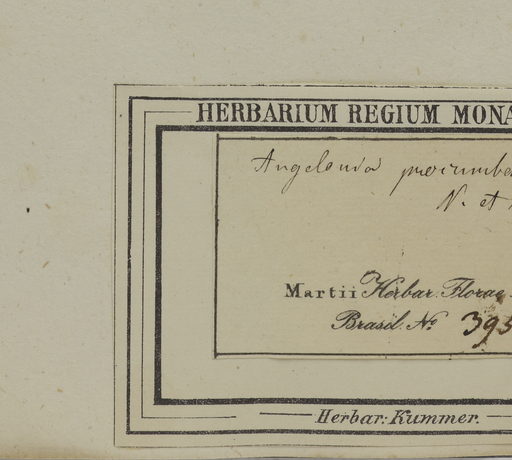 HERBARIUM REGIUM MONA
Angelonia procumbe
N. et
Martii Herbar. Florae
Brasil. No. 395
Herbar: Kummer.